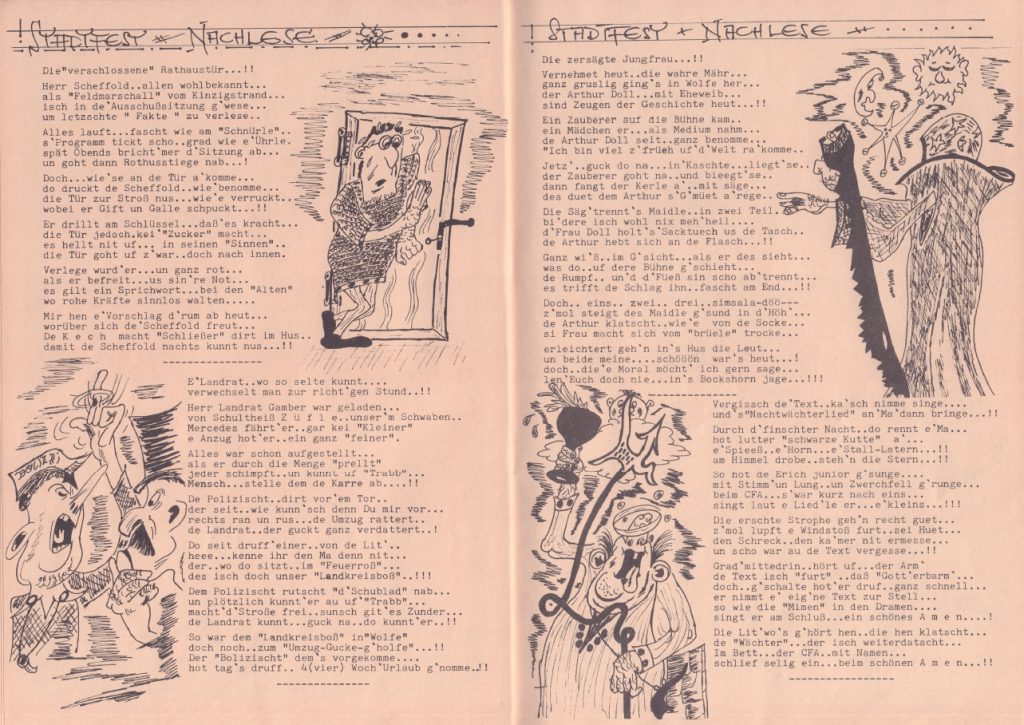 ! STADTFEST * NACHLESE *
Die"verschlossene" Rathaustür...!!
Herr Scheffold..allen wohlbekannt...
als "Feldmarschall" vom Kinzigstrand...
isch in de'Ausschußsitzung g'wese...
um letzschte " Fakte " zu verlese..
Alles lauft...fascht wie am "Schnürle"..
s'Programm tickt scho..grad wie e'Uhrle.
spät Obends bricht'mer d'Sitzung ab...
un goht dann Rothusstiege nab...!
Doch...wie'se an de Tür a'komme...
do druckt de Scheffold..wie'benomme...
die Tür zur Stroß nus...wie'e verruckt..
wobei er Gift un Galle schpuckt...!!
Er drillt am Schlüssel...daß'es kracht...
die Tür jedoch.kei'"Zucker" macht...
es hellt nit uf... in seinen "Sinnen"..
die Tür goht uf z'war..doch nach innen.
Verlege wurd'er...un ganz rot...
als er befreit...us sin're Not...
es gilt ein Sprichwort...bei den "Alten"
wo rohe Kräfte sinnlos walten.....
Mir hen e'Vorschlag d'rum ab heut...
worüber sich de'Scheffold freut...
De K e c h  macht "Schließer" dirt im Hus..
damit de Scheffold nachts kunnt nus...!!
---------------
E'Landrat..wo so selte kunnt....
verwechselt man zur richt'gen Stund..!!
Herr Landrat Gamber war geladen...
von Schultheiß Z ü f l e..unser'm Schwaben..
Mercedes fährt'er..gar kei "Kleiner"
e Anzug hot'er..ein ganz "feiner".
Alles war schon aufgestellt...
als er durch die Menge "prellt"
jeder schimpft..un kunnt uf "Trabb"...
Mensch...stelle dem de Karre ab....!!
De Polizischt..dirt vor'em Tor..
der seit..wie kunn'sch denn Du mir vor...
rechts ran un rus...de Umzug rattert..
de Landrat..der guckt ganz verdattert..!
Do seit druff'einer..von de Lit'..
heee...kenne ihr den Ma denn nit...
der..wo do sitzt..im "Feuerroß"...
des isch doch unser "Landkreisboß"..!!!
Dem Polizischt rutscht "d'Schublad" nab...
un plötzlich kunnt'er au uf"Trabb"...
macht'd'Stroße frei..sunsch git'es Zunder...
de Landrat kunnt..guck na..do kunnt'er..!
So war dem "Landkreisboß" in"Wolfe"
doch noch..zum "Umzug-Gucke-g'holfe"...!!
Der "Bolizischt" dem's vorgekomme....
hot tag's druff.. 4(vier) Woch'Urlaub g'nomme..!!
---------------
! STADTFEST + NACHLESE *
Die zersägte Jungfrau...!!
Vernehmet heut..die wahre Mähr...
ganz gruslig ging's in Wolfe her...
der Arthur Doll...mit Eheweib...
sind Zeugen der Geschichte heut...!!
Ein Zauberer auf die Bühne kum..
ein Mädchen er...als Medium nahm...
de Arthur Doll seit..ganz benomme...
"Ich bin viel z'früeh uf'd'Welt ra'komme..
Jetz'..guck do na...in'Kaschte...liegt'se.
der Zauberer goht na..und bieegt'se..
dann fangt der Kerle a'..mit säge...
des duet dem Arthur s'G'müet a'rege..
Die Säg'trennt's Maidle..in zwei Teil..
bi'dere isch wohl nix meh'heil....
d'Frau Doll holt's'Sacktuech us de Tasch..
de Arthur hebt sich an de Flasch...!!
Ganz wi'ß..im G'sicht...als er des sieht...
was do..uf dere Bühne g'schieht...
de Rumpf.. un'd d'Füeß sin scho ab'trennt...
es trifft de Schlag ihn..fascht am End...!!
Doch.. eins.. zwei.. drei..simsala-döö---
z'mol steigt des Maidle g'sund in d'Höh'...
de Arthur klatscht..wie'e  von de Socke...
si Frau macht sich vom "brüele" trocke...
erleichtert geh'n in's Hus die Leut...
un beide meine....schööön  war's heut...!
doch..die'e Moral möcht' ich gern sage...
len'Euch doch nie...in's Bockshorn jage...!!!
Vergisch de'Text..ka'sch nimme singe....
und's"Nachtwächterlied" an'Ma'dann bringe...!!
Durch d'finschter Nacht..do rennt e'Ma...
hot lutter "schwarze Kutte"  a'...
e'Spieeß..e'Horn...e'Stall-Latern...!!
am Himmel drobe..steh'n die Stern...!!
So hot de Erich junior g'sunge...
mit Stimm'un Lung..un Zwerchfell g'runge...
beim CFA...s'war kurz nach eins...
singt laut e Lied'le er...e'kleins...!!!
Die erschte Strophe geh'n recht guet...
z'mol lupft e Windstoß furt..sei Huet...
den Schreck..den ka'mer nit ermesse...
un scho war au de Text vergesse...!!
Grad'mittedrin..hört uf...der Arm'
de Text isch "furt" ..daß "Gott'erbarm'...
doch..g'schalte hot'er druf..ganz schnell...
er nimmt e' eig'ne Text zur Stell...
so wie die "Mimen" in den Dramen....
singt er am Schluß...ein schönes A m e n....!
Die Lit'wo's g'hört hen..die hen klatscht...
de "Wächter"..der isch weiterdatscht...
Im Bett...der CFA..mit Namen...
schlief selig ein...beim schönen A m e n...!!
----------------